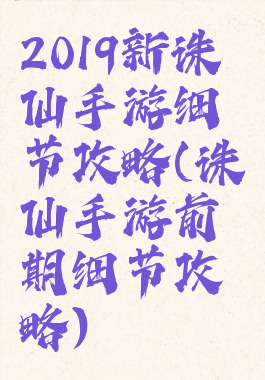 2019新诛
仙手游细
节攻略(诛
仙手游前
期细节攻
略)